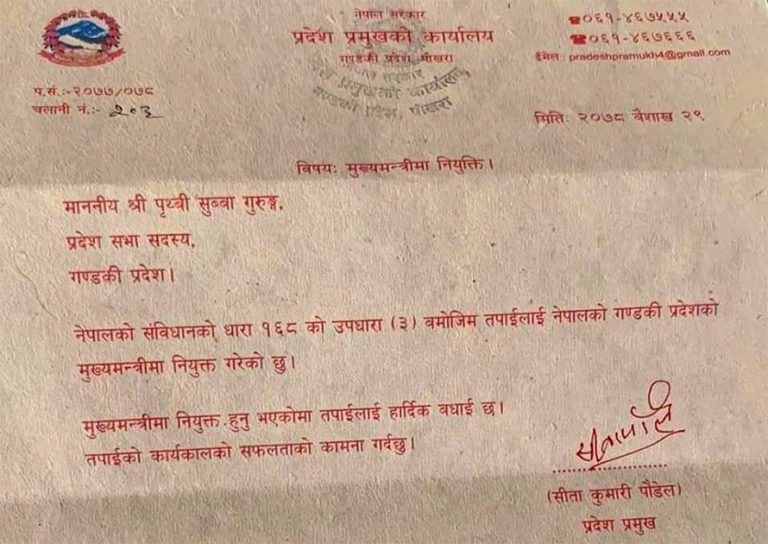 नेपाल सरकार
प्रदेश प्रमुखको कार्यालय
गण्डकी प्रदेश, पोखरा
☎०६१-४६७५५५
☎०६१-४६७६६६
ईमेल : pradeshpramukh4@gmail.com
प.सं.:-२०७७/०७८
चलानी नं.:- २०३
मिति: २०७८ बैशाख २९
विषय: मुख्यमन्त्रीमा नियुक्ति ।
माननीय श्री पृथ्वी सुब्बा गुरुङ्ग,
प्रदेश सभा सदस्य,
गण्डकी प्रदेश ।
नेपालको संविधानको धारा १६८ को उपधारा (३) बमोजिम तपाईलाई नेपालको गण्डकी प्रदेशको
मुख्यमन्त्रीमा नियुक्त गरेको छु ।
मुख्यमन्त्रीमा नियुक्त हुनु भएकोमा तपाईलाई हार्दिक बधाई छ ।
तपाईको कार्यकालको सफलताको कामना गर्दछु ।
(सीता कुमारी पौडेल)
प्रदेश प्रमुख